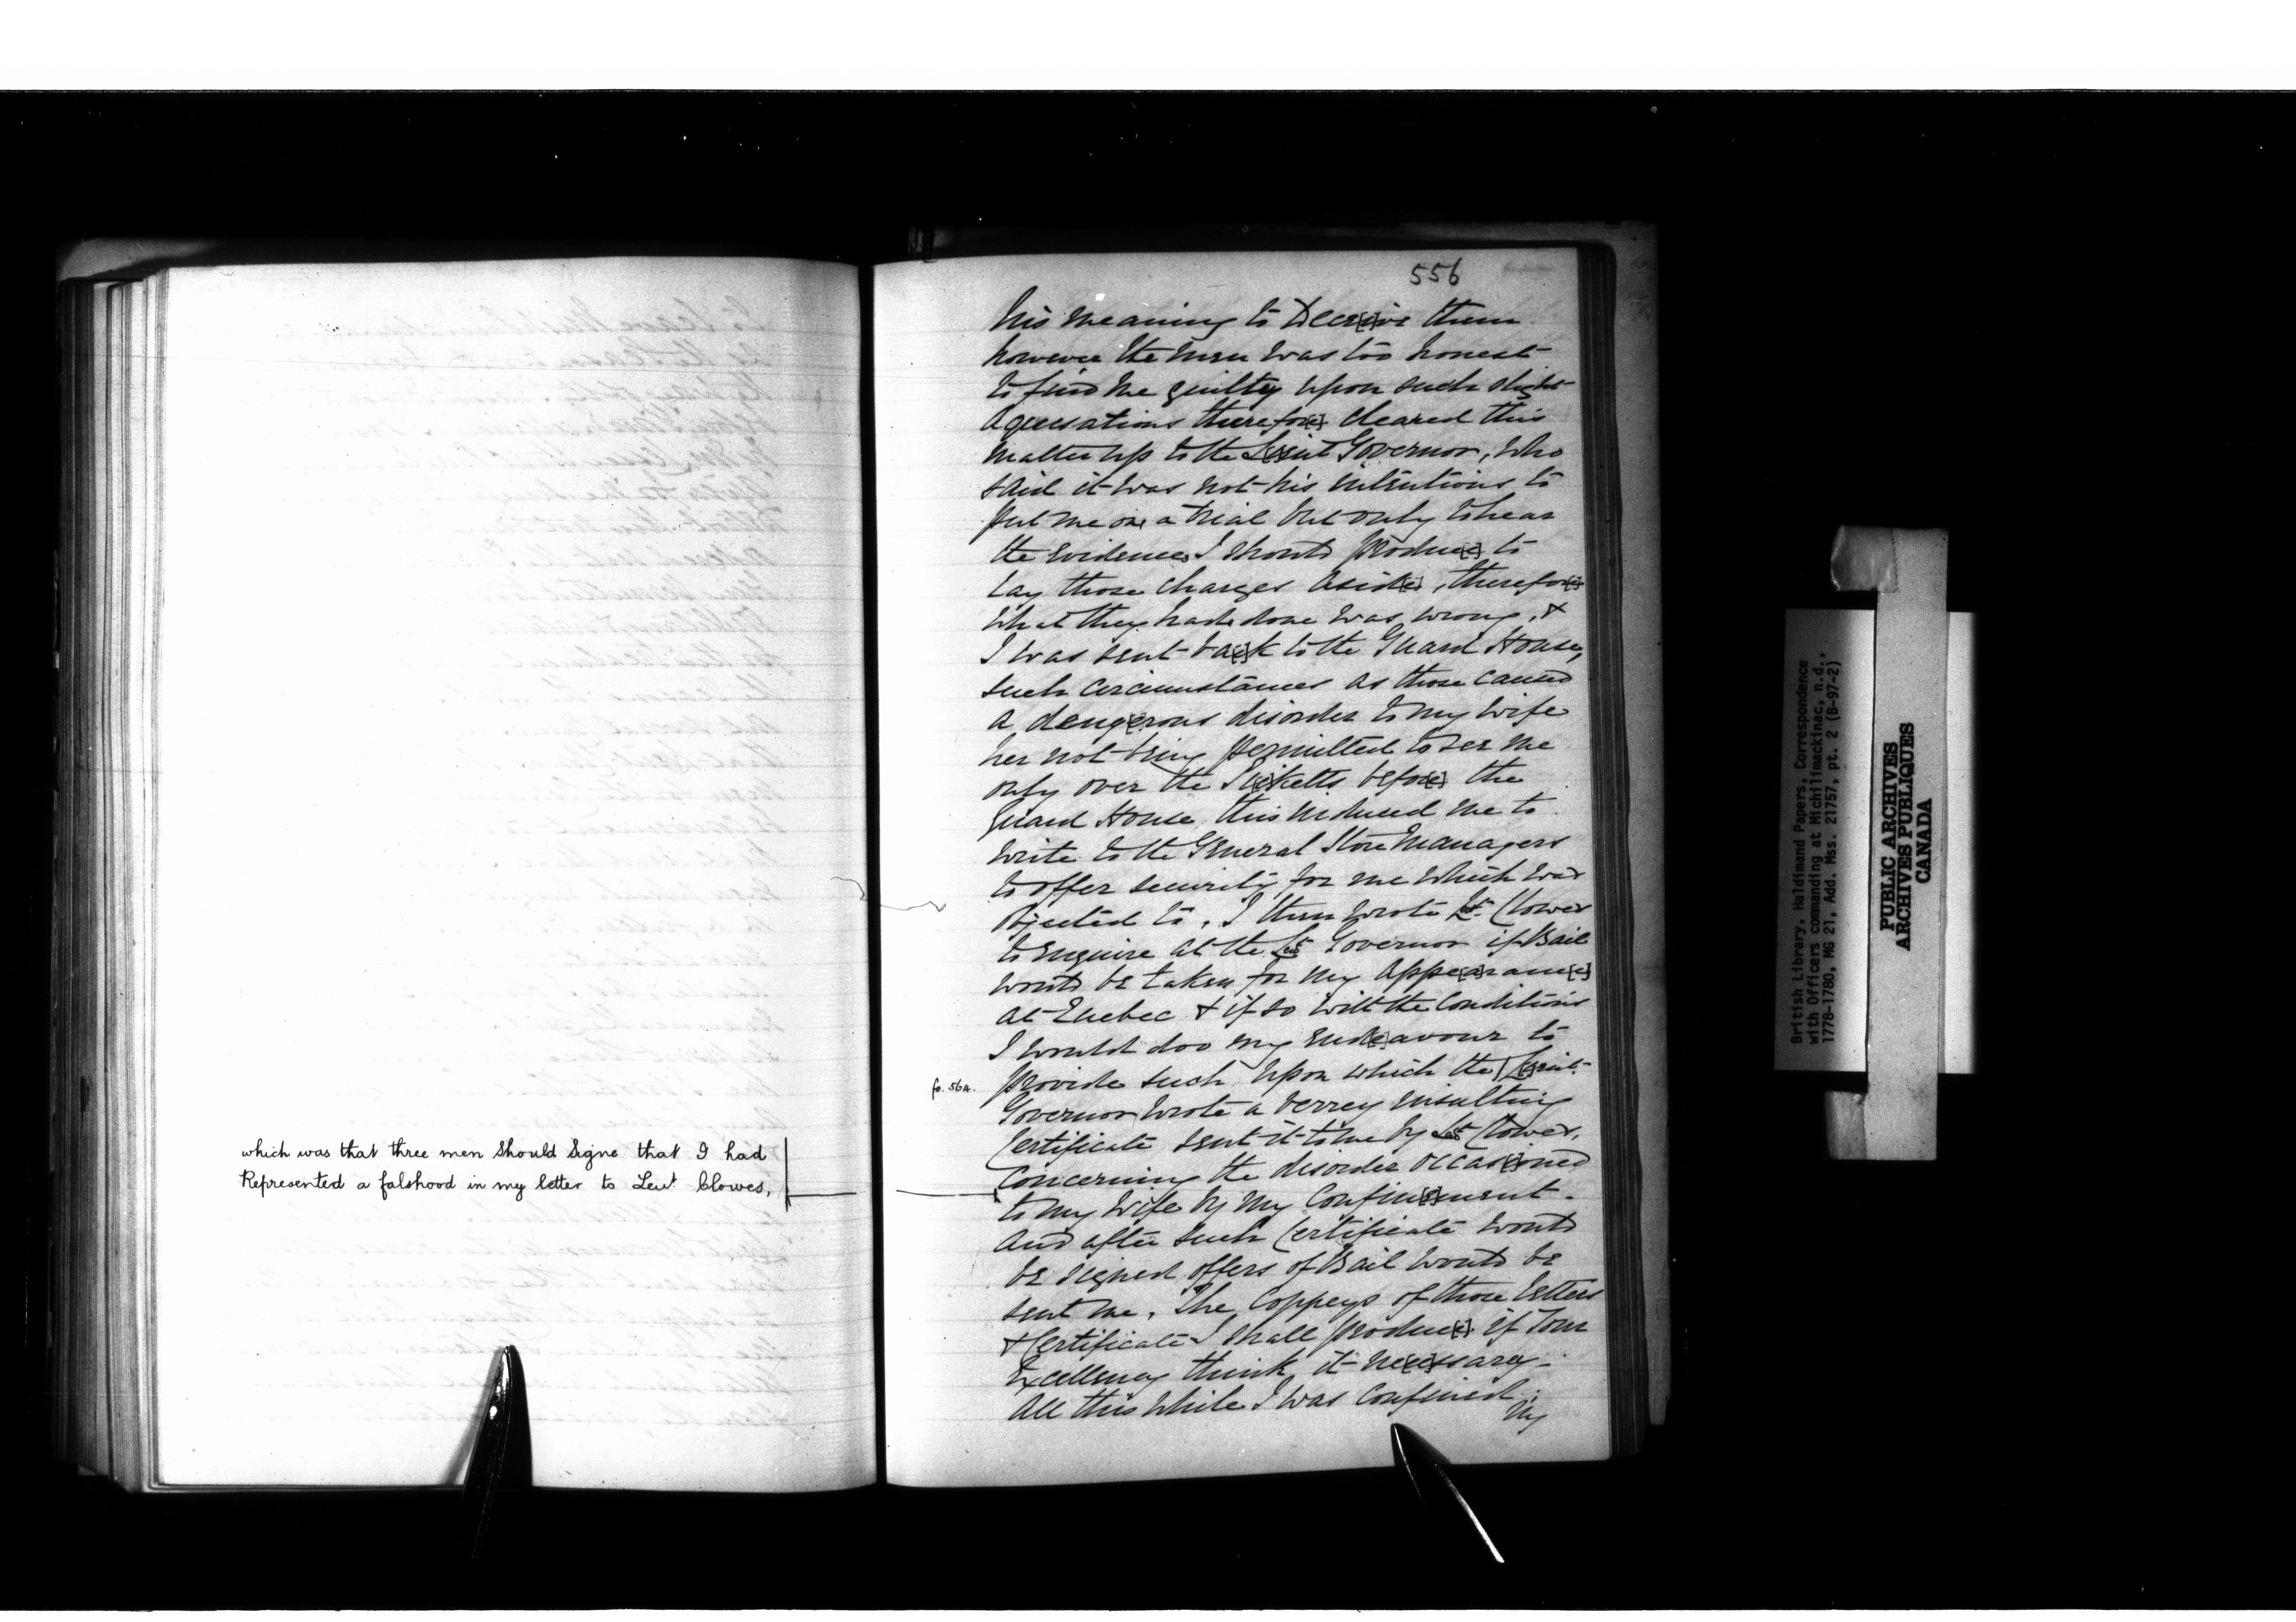 which was that three men should Signe that I had
Represented a falshood in my letter to Leut. Clowes,
556
his meaning to Deceive them
however the men was too honest
to find me guilty upon such slight
aquesations therefore cleared this
matter up to the Leiut Governor, who
said it was not his intentions to
put me on a trial but only to hear
the evidences I should produce to
lay those charges aside, therefore
what they had done was wrong, &
I was sent back to the Guard House,
such circumstances as those caused
a dengerous disorder to my wife
her not being permitted to see me
only over the Picketts before the
Guard House this induced me to
write to the General Store Managers
to offer security for me which was
objected to, I then wrote Lt. Clowes
to enquire at the Lt Governor if Bail
would be taken for my appearance
at Quebec & if so with the Conditions
I would doo my endeavour to
fo. 56A.
provide such upon which the / Leiut.
Governor wrote a verrey insulting
Certificate sent it to me by Lt Clowes,
Concerning the disorder occasioned
to my wife by my Confinement.
and after such Certificate would
be signed offers of Bail would be
sent me, The Coppeys of those letters
& Certificate I shall produce if Your
Excellency think it necessary.
All this while I was confined;
My
British Library, Haldimand Papers, Correspondence
with Officers commanding at Michilimackinac, n.d.,
1778-1780, MG 21, Add. Mss. 21757, pt. 2 (B-97-2)
PUBLIC ARCHIVES
ARCHIVES PUBLIQUES
CANADA